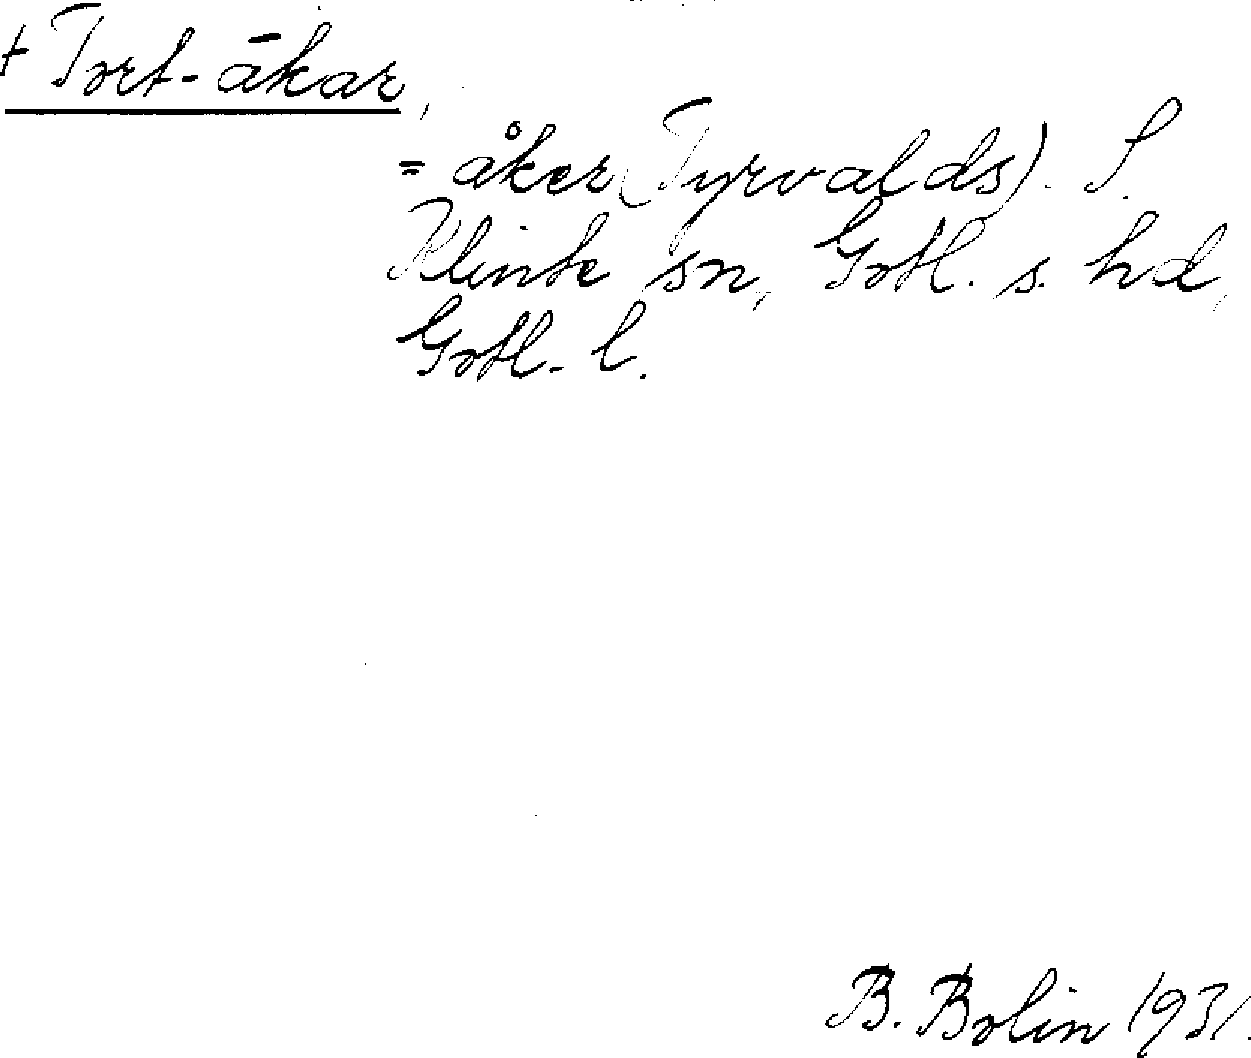 + Tort-åkar,
= åker (Tyrvalds). S.
Klinte sn, Gotl. s. hd,
Gotl. l.
B. Bolin 1931.